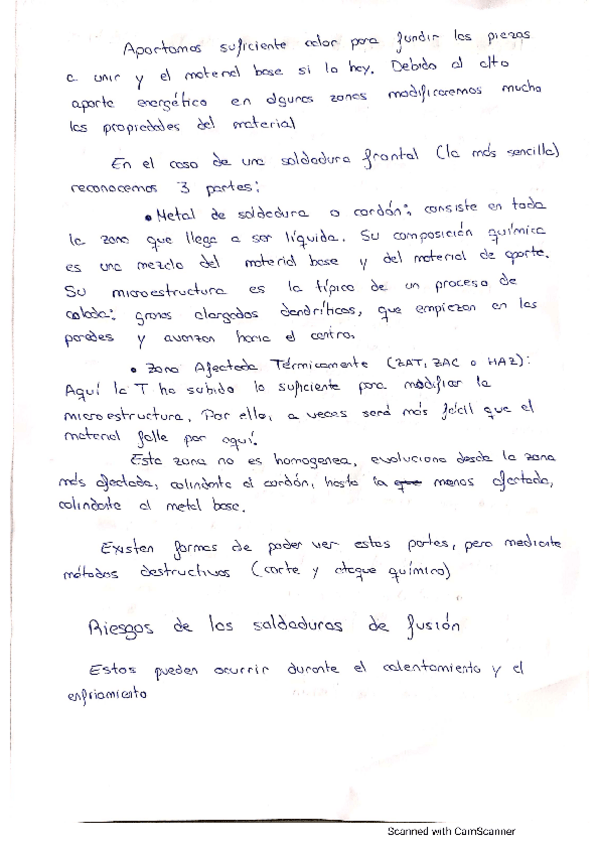 Aportamos suficiente calor para fundir las piezas
a unir y el material base si lo hay. Debido al alto
aporte energético en algunas zonas modificaremos mucho
las propiedades del material
En el caso de una soldadura frontal (la más sencilla)
reconocemos 3 partes:
• Metal de soldadura o cordón: consiste en toda
la zona que llega a ser líquida. Su composición química
es una mezcla del material base y del material de aporte.
Su microestructura es la típica de un proceso de
colada: granos alargados dendríticos, que empiezan en las
paredes y avanzan hacia el centro.
• Zona Afectada Térmicamente (ZAT, ZAC o HAZ):
Aquí la T ha subido lo suficiente para modificar la
microestructura. Por ello, a veces será más fácil que el
material falle por aquí.
Esta zona no es homogenea, evoluciona desde la zona
más afectada, colindante al cordón, hasta la que menos afectada,
colindante al metal base.
Existen formas de poder ver estas partes, pero mediante
métodos destructivos (corte y ataque químico)
Riesgos de las soldaduras de fusión
Estos pueden ocurrir durante el calentamiento y el
enfriamiento
Scanned with CamScanner